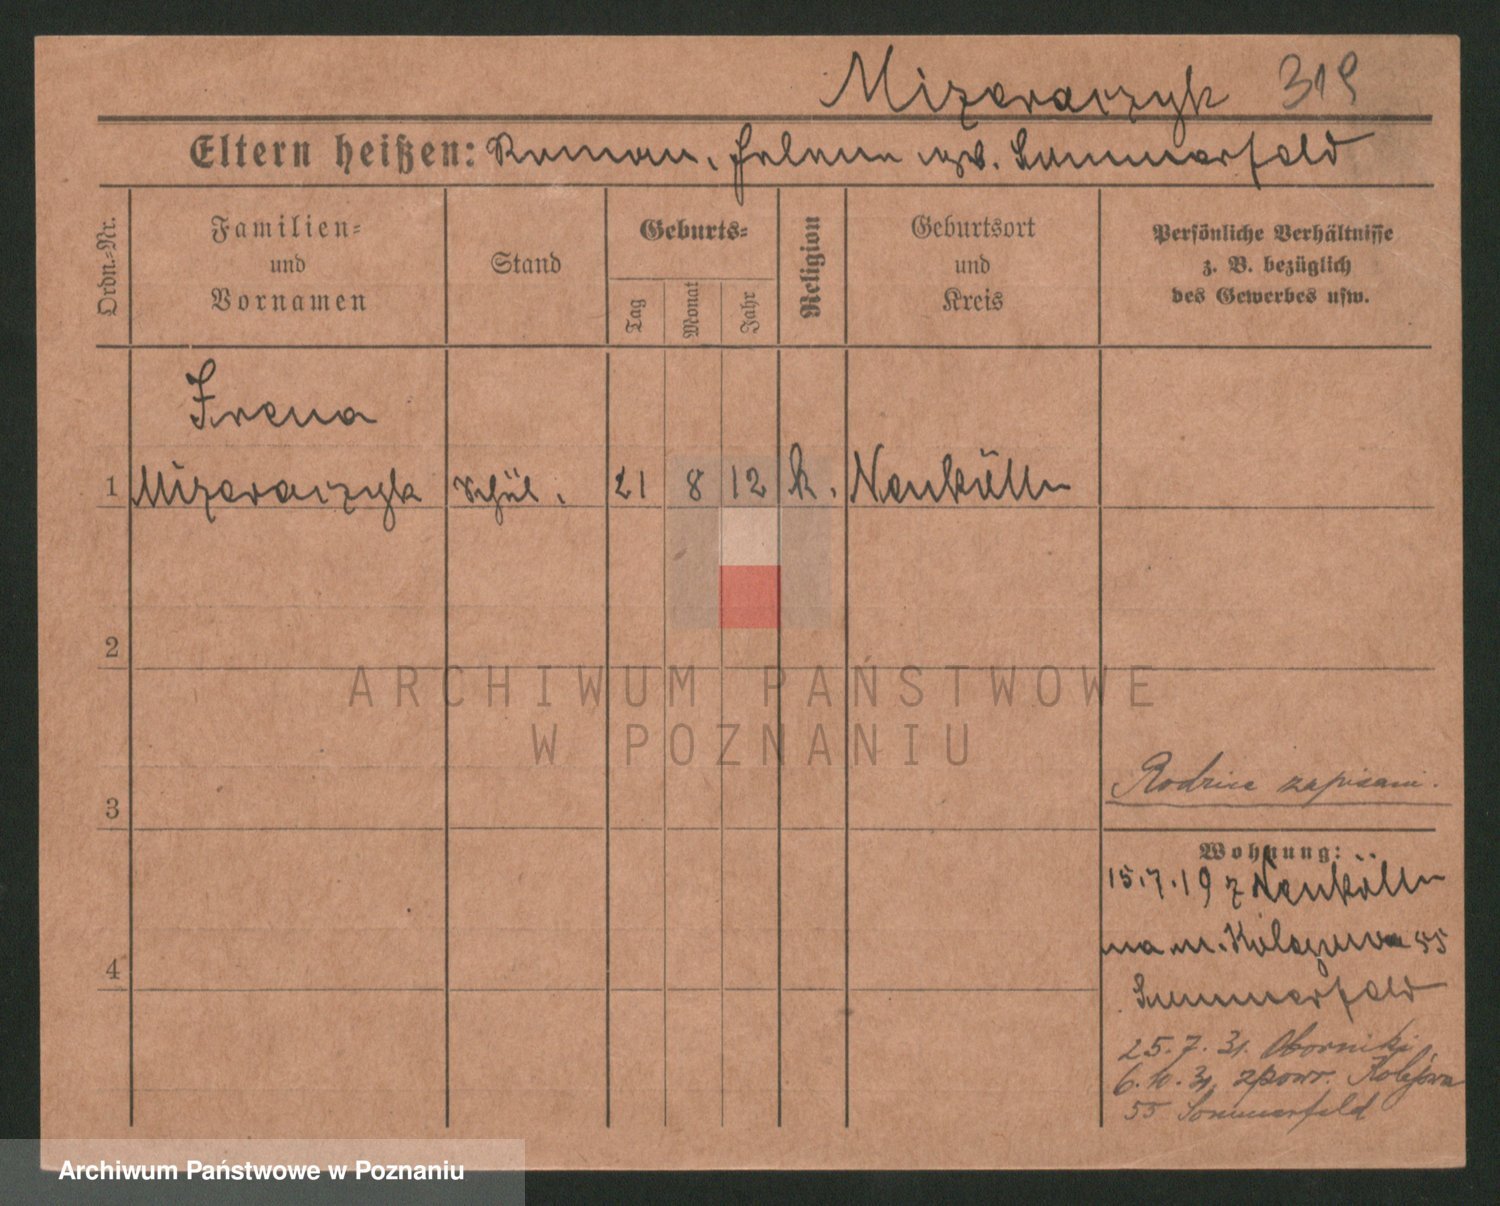 Mizeraczyk 319
Eltern heißen: Roman, Helena Sommerfeld
Ordn.-Nr.
Familien-
und
Vornamen
Stand
Geburts-
Tag
Monat
Jahr
Religion
Geburtsort
und
Kreis
Persönliche Verhältnisse
z. B. bezüglich
des Gewerbes usw.
Irena
1 Mizeraczyk Schül. 21 8 12 k. Neukölln
2
ARCHIWUM PAŃSTWOWE
W POZNANIU
Rodzice zapisani.
3
Wohnung:
15.7.19 z Neukölln
na 55
4
Sommerfeld
25.7.31. Oborniki
6.10.31. zpowr. Kolejowa
55 Sommerfeld
Archiwum Państwowe w Poznaniu